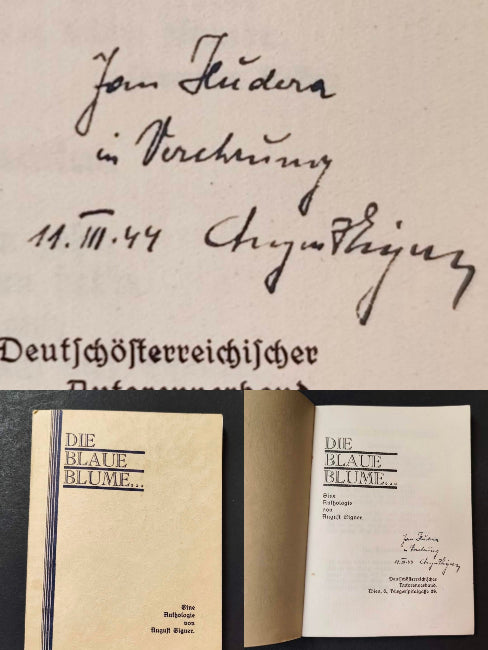 Jan Kudera
in Verehrung
11. III. 44 August Eigner
Deutschösterreichischer
Autorenverband
DIE
BLAUE
BLUME...
Eine
Anthologie
von
August Eigner.
DIE
BLAUE
BLUME...
Eine
Anthologie
von
August Eigner.
Jan Kudera
in Verehrung
11. III. 44 August Eigner
Deutschösterreichischer
Autorenverband.
Wien, 6,